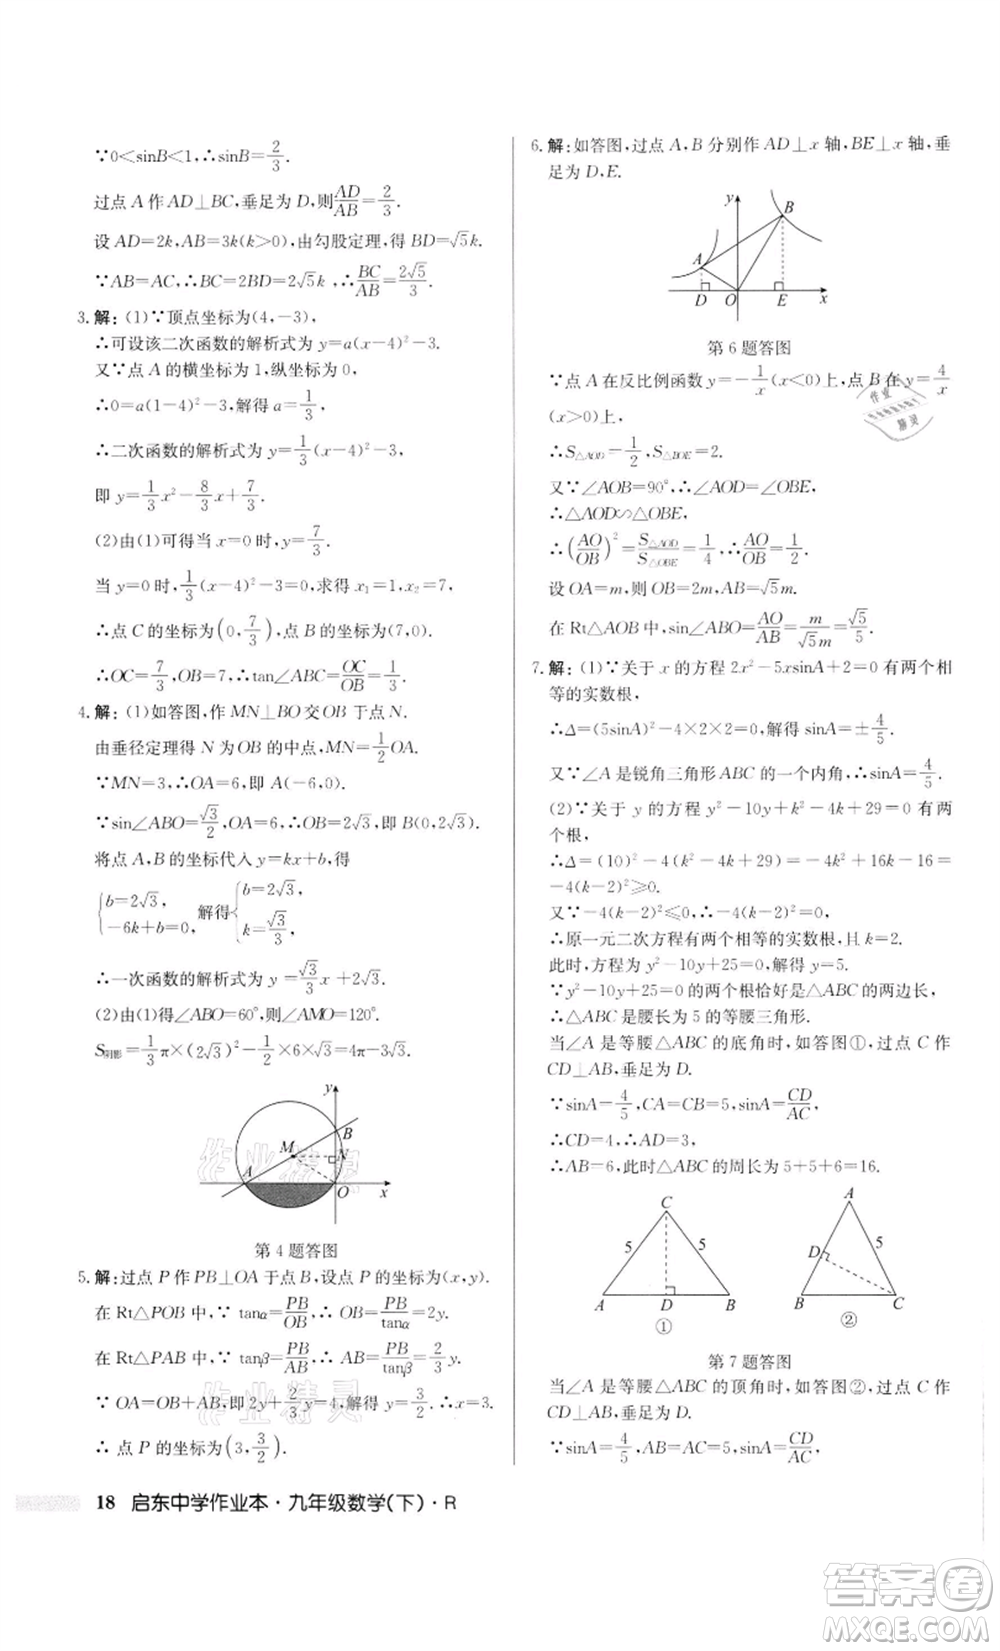 ∵0<sinB<1,∴sinB=2/3.
过点 A 作 AD⊥BC,垂足为 D,则AD/AB=2/3.
设 AD=2k,AB=3k(k>0),由勾股定理,得 BD=√5k.
∵AB=AC,∴BC=2BD=2√5k,∴BC/AB=2√5/3.
3.解:(1)∵顶点坐标为(4,-3),
∴可设该二次函数的解析式为 y=a(x-4)²-3.
又∵点 A 的横坐标为 1,纵坐标为 0,
∴0=a(1-4)²-3,解得 a=1/3,
∴二次函数的解析式为 y=1/3(x-4)²-3,
即 y=1/3x²-8/3x+7/3.
(2)由(1)可得当 x=0 时,y=7/3,
当 y=0时,1/3(x-4)²-3=0,求得 x₁=1,x₂=7,
∴点 C 的坐标为(0,7/3),点 B 的坐标为(7,0),
∴OC=7/3,OB=7,∴tan∠ABC=OC/OB=1/3.
4.解:(1)如答图,作 MN⊥BO交 OB 于点 N.
由垂径定理得 N 为OB 的中点,MN=1/2OA.
∵MN=3,∴OA=6,即 A(-6,0).
∵sin∠ABO=√3/2,OA=6,∴OB=2√3,即 B(0,2√3).
将点 A,B 的坐标代入 y=kx+b,得
{b=2√3, -6k+b=0, 解得{b=2√3, k=√3/3,
∴一次函数的解析式为 y=√3/3x+2√3.
(2)由(1)得∠ABO=60°,∴∠AMO=120°,
S阴影=1/3π×(2√3)²-1/2×6×√3=4π-3√3.
y
B
M
N
A
O
x
第 4 题答图
5.解:过点 P 作 PB⊥OA 于点 B,设点 P 的坐标为(x,y).
在 Rt△POB 中,∵ tanα=PB/OB,∴ OB=PB/tanα=2y.
在 Rt△PAB 中,∵ tanβ=PB/AB,∴ AB=PB/tanβ=2/3y.
∵ OA=OB+AB=4,即 2y+2/3y=4,∴y=3/2,∴x=3.
∴ 点 P 的坐标为(3,3/2).
18 启东中学作业本·九年级数学(下)·R
6.解:如答图,过点 A,B 分别作 AD⊥x 轴,BE⊥x轴,垂
足为 D,E.
y
B
A
D
O
E
x
第 6 题答图
∵点 A 在反比例函数 y=-1/x(x<0)上,点 B 在 y=4/x
(x>0)上,
∴S△AOD=1/2,S△BOE=2.
又∵∠AOB=90°,∴∠AOD=∠OBE,
∴△AOD∽△OBE,
∴(AO/OB)²=S△AOD/S△OBE=1/4,∴AO/OB=1/2.
设 OA=m,则 OB=2m,AB=√5m.
在 Rt△AOB 中,sin∠ABO=AO/AB=m/√5m=√5/5.
7.解:(1)∵关于 x 的方程 2x²-5xsinA+2=0 有两个相
等的实数根,
∴Δ=(5sinA)²-4×2×2=0,解得 sinA=±4/5.
又∵∠A 是锐角三角形 ABC 的一个内角,∴sinA=4/5.
(2)∵关于 y 的方程 y²-10y+k²-4k+29=0 有两
个根,
∴Δ=(10)²-4(k²-4k+29)=-4k²+16k-16=
-4(k-2)²≥0.
又∵-4(k-2)²≤0,∴-4(k-2)²=0,
∴原一元二次方程有两个相等的实数根,且 k=2.
此时,方程为 y²-10y+25=0,解得 y=5.
∵y²-10y+25=0 的两个根恰好是△ABC 的两边长,
∴△ABC 是腰长为 5 的等腰三角形.
当∠A 是等腰△ABC 的底角时,如答图①,过点 C 作
CD⊥AB,垂足为 D.
∵sinA=4/5,CA=CB=5,sinA=CD/AC,
∴CD=4,∴AD=3,
∴AB=6,∴△ABC 的周长为5+5+6=16.
C
5
A
D
B
①
A
D
5
B
C
②
第 7 题答图
当∠A 是等腰△ABC 的顶角时,如答图②,过点 C 作
CD⊥AB,垂足为 D.
∵sinA=4/5,AB=AC=5,sinA=CD/AC,
作业精灵
作业精灵
作业
精灵
答案卷
MXQE.COM